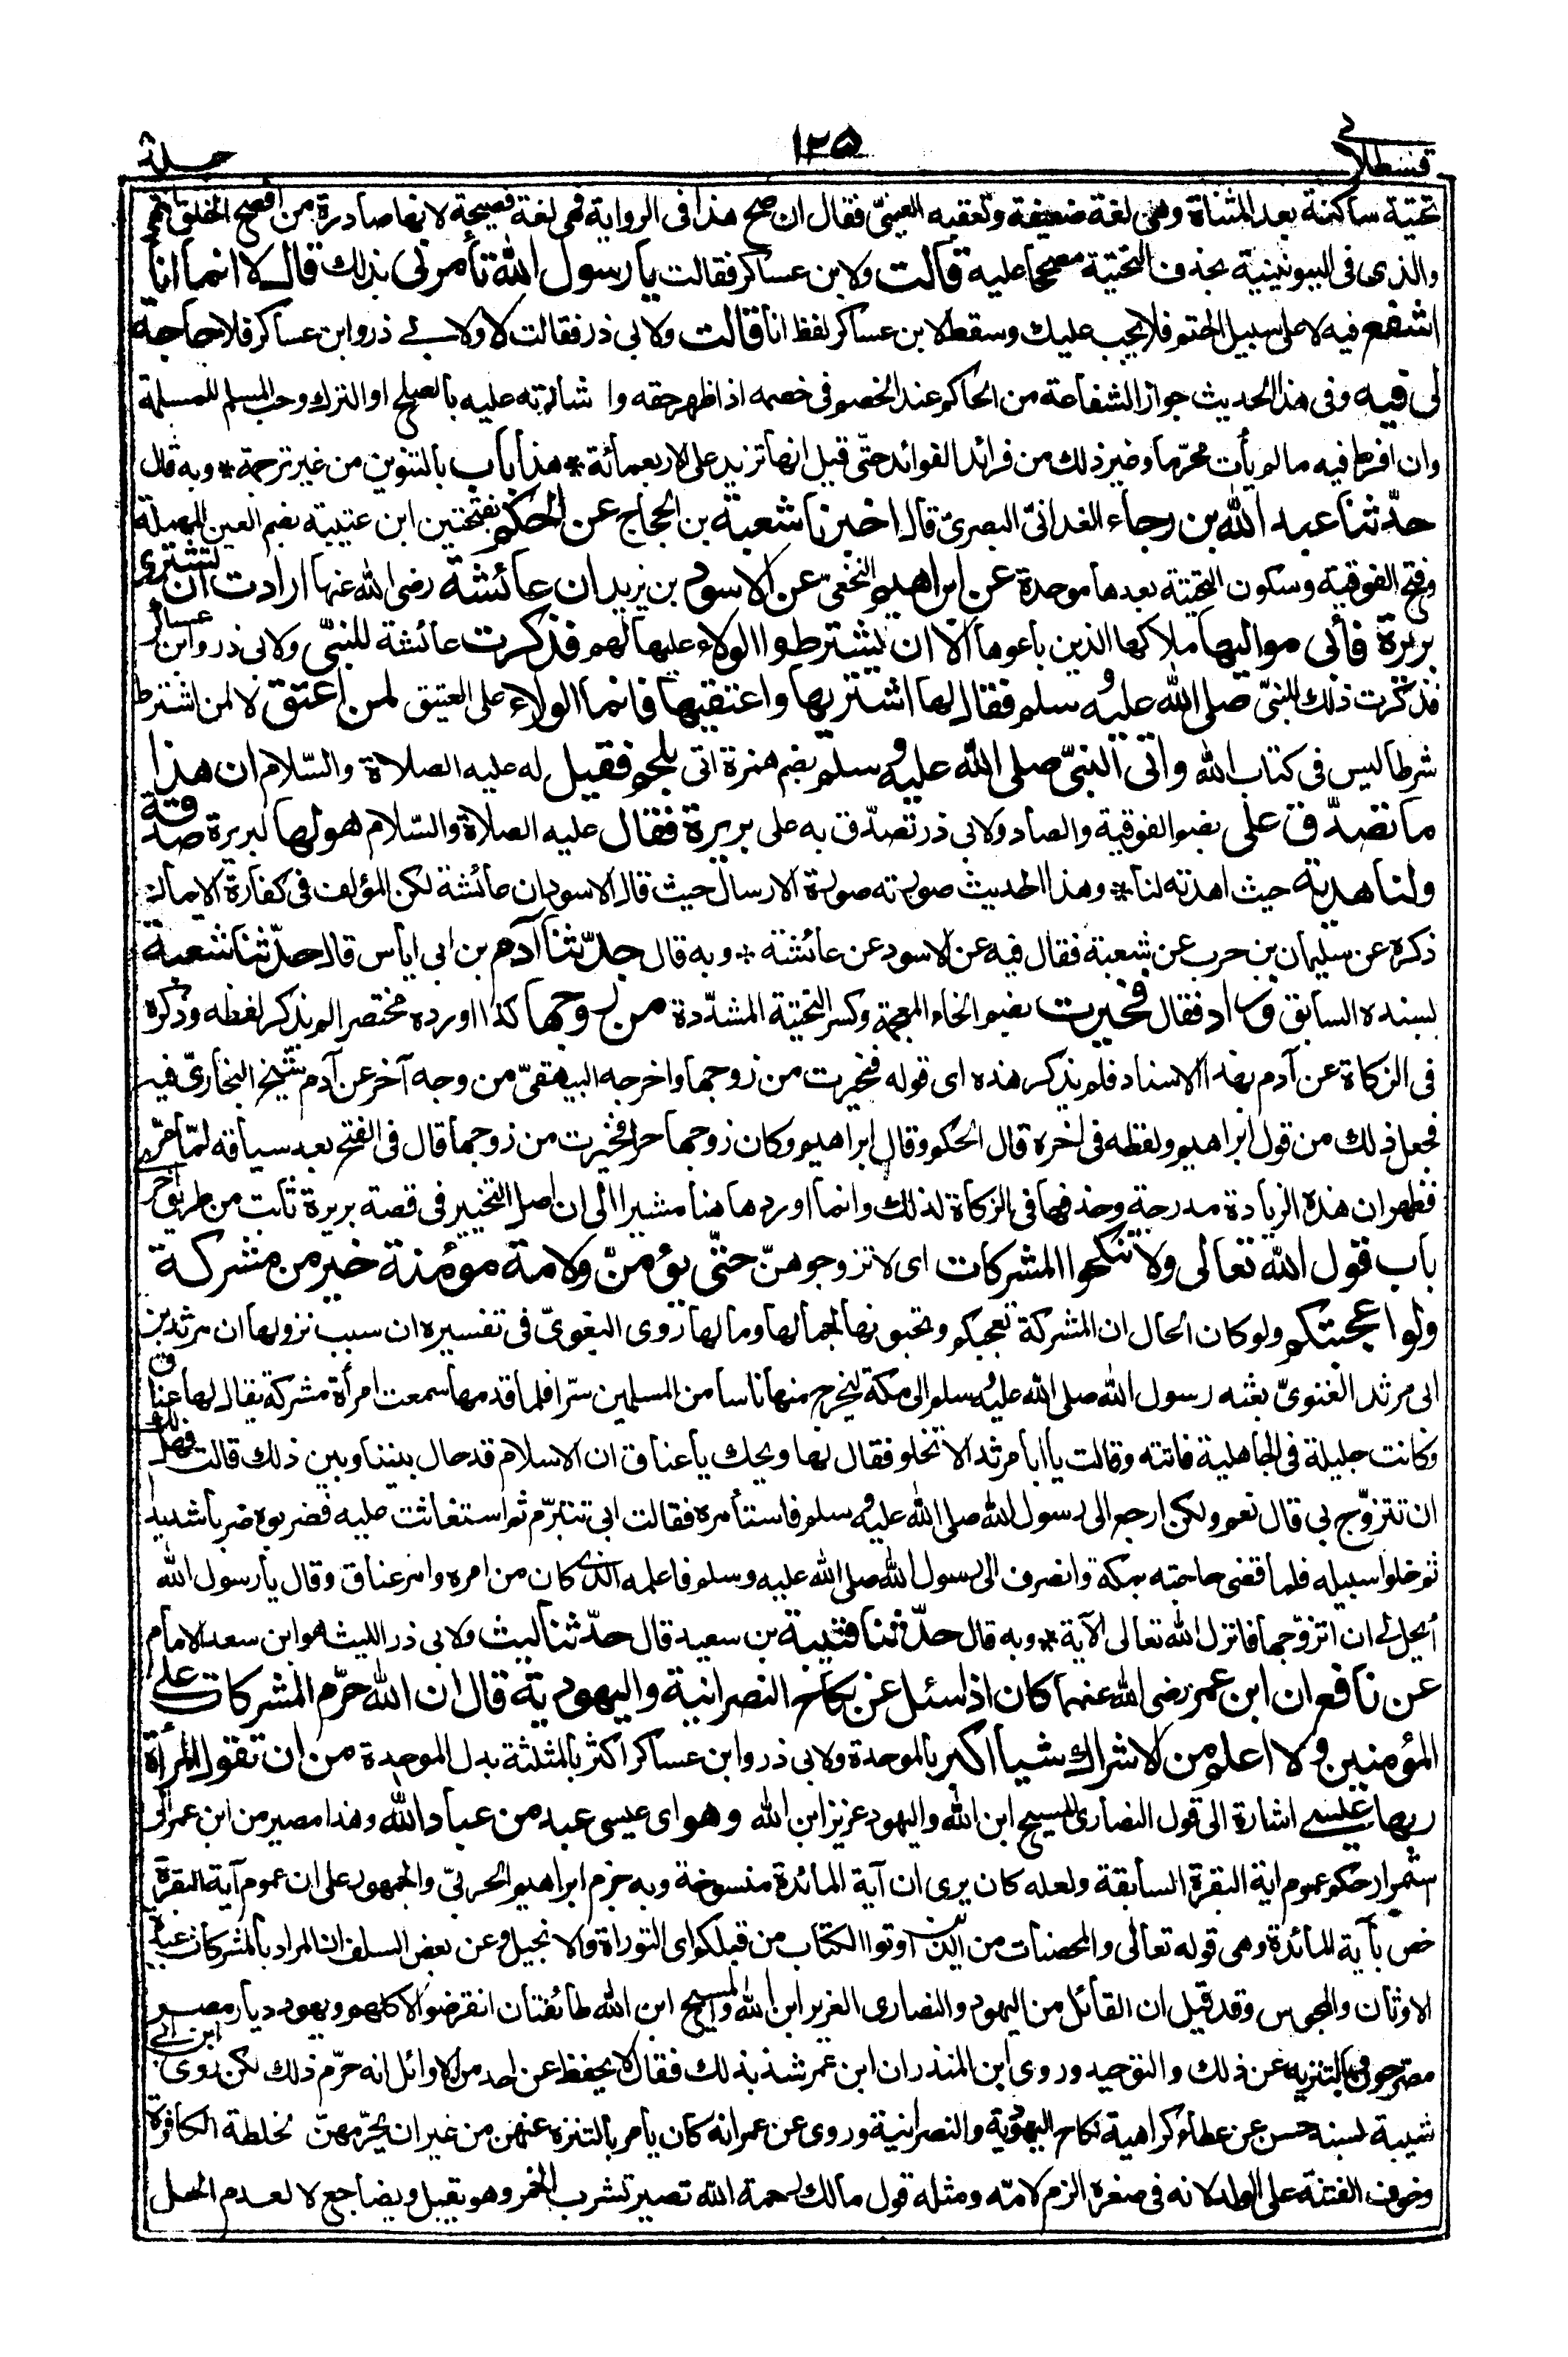 قسطلانی
١٢٥
جلد ٨
تحتية ساكنة بعد المثناة وهى لغة ضعيفة وتعقبه العينىّ فقال ان صح هذا فى الرواية فهى لغة فصيحة لانها صادرة من افصح الخلق انتهى
والذى فى اليونينية بحذف التحتية مصححا عليه قالت ولابن عساكر فقالت يا رسول الله تأمرنى بذلك قال لا انما انا
اشفع فيه لا على سبيل الحتم فلا يجب عليك وسقط لابن عساكر لفظ انا قالت ولابى ذر فقالت لا ولابى ذر وابن عساكر فلا حاجة
لى فيه وفى هذا الحديث جواز الشفاعة من الحاكم عند الخصم فى خصمه اذا ظهر حقه واشارته عليه بالصلح او الترك وحب المسلم للمسلمة
وان افرط فيه ما لم يأت محرّما وغير ذلك من فرائد الفوائد حتّى قيل انها تزيد على الاربعمائة * هذا باب بالتنوين من غير ترجمة * وبه قال
حدّثنا عبد الله بن رجاء الغدانىّ البصرىّ قال اخبرنا شعبة بن الحجاج عن الحكم بفتحتين ابن عتيبة بضم العين المهملة
وفتح الفوقية وسكون التحتية بعدها موحدة عن ابراهيم النخعىّ عن الاسود بن يزيد ان عائشة رضى الله عنها ارادت ان تشترى
بريرة فأبى مواليها ملاكها الذين باعوها الا ان يشترطوا الولاء عليها لهم فذكرت عائشة للنبىّ ولابى ذر وابن عساكر
فذكرت ذلك للنبىّ صلى الله عليه وسلم فقال لها اشتريها واعتقيها فانما الولاء على العتيق لمن اعتق لا لمن اشترط
شرطا ليس فى كتاب الله واتى النبىّ صلى الله عليه وسلم بضم همزة اتى بلحم فقيل له عليه الصلاة والسّلام ان هذا
ما تصدّق على بضم الفوقية والصاد ولابى ذر تصدّق به على بريرة فقال عليه الصلاة والسّلام هو لها لبريرة صدقة
ولنا هدية حيث اهدته لنا * وهذا الحديث صورته صورة الارسال حيث قال الاسود ان عائشة لكن المؤلف فى كفارة الايمان
ذكره عن سليمان بن حرب عن شعبة فقال فيه عن الاسود عن عائشة * وبه قال حدّثنا آدم بن ابى اياس قال حدّثنا شعبة
بسنده السابق وزاد فقال فخيرت بضم الخاء المعجمة وكسر التحتية المشدّدة من زوجها كذا اورده مختصرا لم يذكر لفظه وذكره
فى الزكاة عن آدم بهذا الاسناد فلم يذكر هذه اى قوله فخيرت من زوجها واخرجه البيهقىّ من وجه آخر عن آدم شيخ البخارىّ فيه
فجعل ذلك من قول ابراهيم ولفظه فى آخره قال الحكم وقال ابراهيم وكان زوجها حرا فخيرت من زوجها قال فى الفتح بعد سياقه لما مرّ
فظهر ان هذه الزيادة مدرجة وحذفها فى الزكاة لذلك وانما اوردها هنا مشيرا الى ان اصل التخيير فى قصة بريرة ثابت من طريق اخرى
باب قول الله تعالى ولا تنكحوا المشركات اى لا تزوجوهنّ حتّى يؤمنّ ولامة مؤمنة خير من مشركة
ولو اعجبتكم ولو كان الحال ان المشركة تعجبكم وتحبونها لجمالها ومالها روى البغوىّ فى تفسيره ان سبب نزولها ان مرثد بن
ابى مرثد الغنوىّ بعثه رسول الله صلى الله عليه وسلم الى مكة ليخرج منها ناسا من المسلمين سرّا فلما قدمها سمعت امرأة مشركة يقال لها عناق
وكانت خليلة فى الجاهلية فاتته وقالت يا ابا مرثد الا تخلو فقال لها ويحك يا عناق ان الاسلام قد حال بيننا وبين ذلك قالت فهل لك
ان تتزوّج بى قال نعم ولكن ارجع الى رسول الله صلى الله عليه وسلم فاستأمره فقالت ابى تتبرّم ثم استغاثت عليه فضربوه ضربا شديدا
ثم خلوا سبيله فلما قضى حاجته بمكة وانصرف الى رسول الله صلى الله عليه وسلم فاعلمه الذى كان من امره وامر عناق وقال يا رسول الله
أيحل لى ان اتزوّجها فانزل الله تعالى الآية * وبه قال حدّثنا قتيبة بن سعيد قال حدّثنا ليث ولابى ذر الليث هو ابن سعد الامام
عن نافع ان ابن عمر رضى الله عنهما كان اذا سئل عن نكاح النصرانية واليهودية قال ان الله حرّم المشركات على
المؤمنين ولا اعلم من الاشراك شيأ اكبر بالموحدة ولابى ذر وابن عساكر اكثر بالمثلثة بدل الموحدة من ان تقول المرأة
ربها عيسى اشارة الى قول النصارى المسيح ابن الله واليهود عزير ابن الله وهو اى عيسى عبد من عباد الله وهذا مصير من ابن عمر الى
استمرار حكم عموم آية البقرة السابقة ولعله كان يرى ان آية المائدة منسوخة وبه جزم ابراهيم الحربىّ والجمهور على ان عموم آية البقرة
خص بآية المائدة وهى قوله تعالى والمحصنات من الذين اوتوا الكتاب من قبلكم اى التوراة والانجيل وعن بعض السلف ان المراد بالمشركات عبدة
الاوثان والمجوس وقد قيل ان القائل من اليهود والنصارى العزير ابن الله والمسيح ابن الله طائفتان انقرضوا الا كلهم ويهود ديار مصر
مصرحون بالتنزيه عن ذلك والتوحيد وروى ابن المنذر ان ابن عمر شذ بذلك فقال لا يحفظ عن احد من الاوائل انه حرّم ذلك لكن روى ابن ابى
شيبة بسند حسن عن عطاء كراهية نكاح اليهودية والنصرانية وروى عن عمر انه كان يأمر بالتنزه عنهن من غير ان يحرّمهنّ لخلطة الكافرة
وخوف الفتنة على الولد لانه فى صغره الزم لامّه ومثله قول مالك رحمه الله تصير تشرب الخمر وهو يقبل ويضاجع لا لعدم الحل